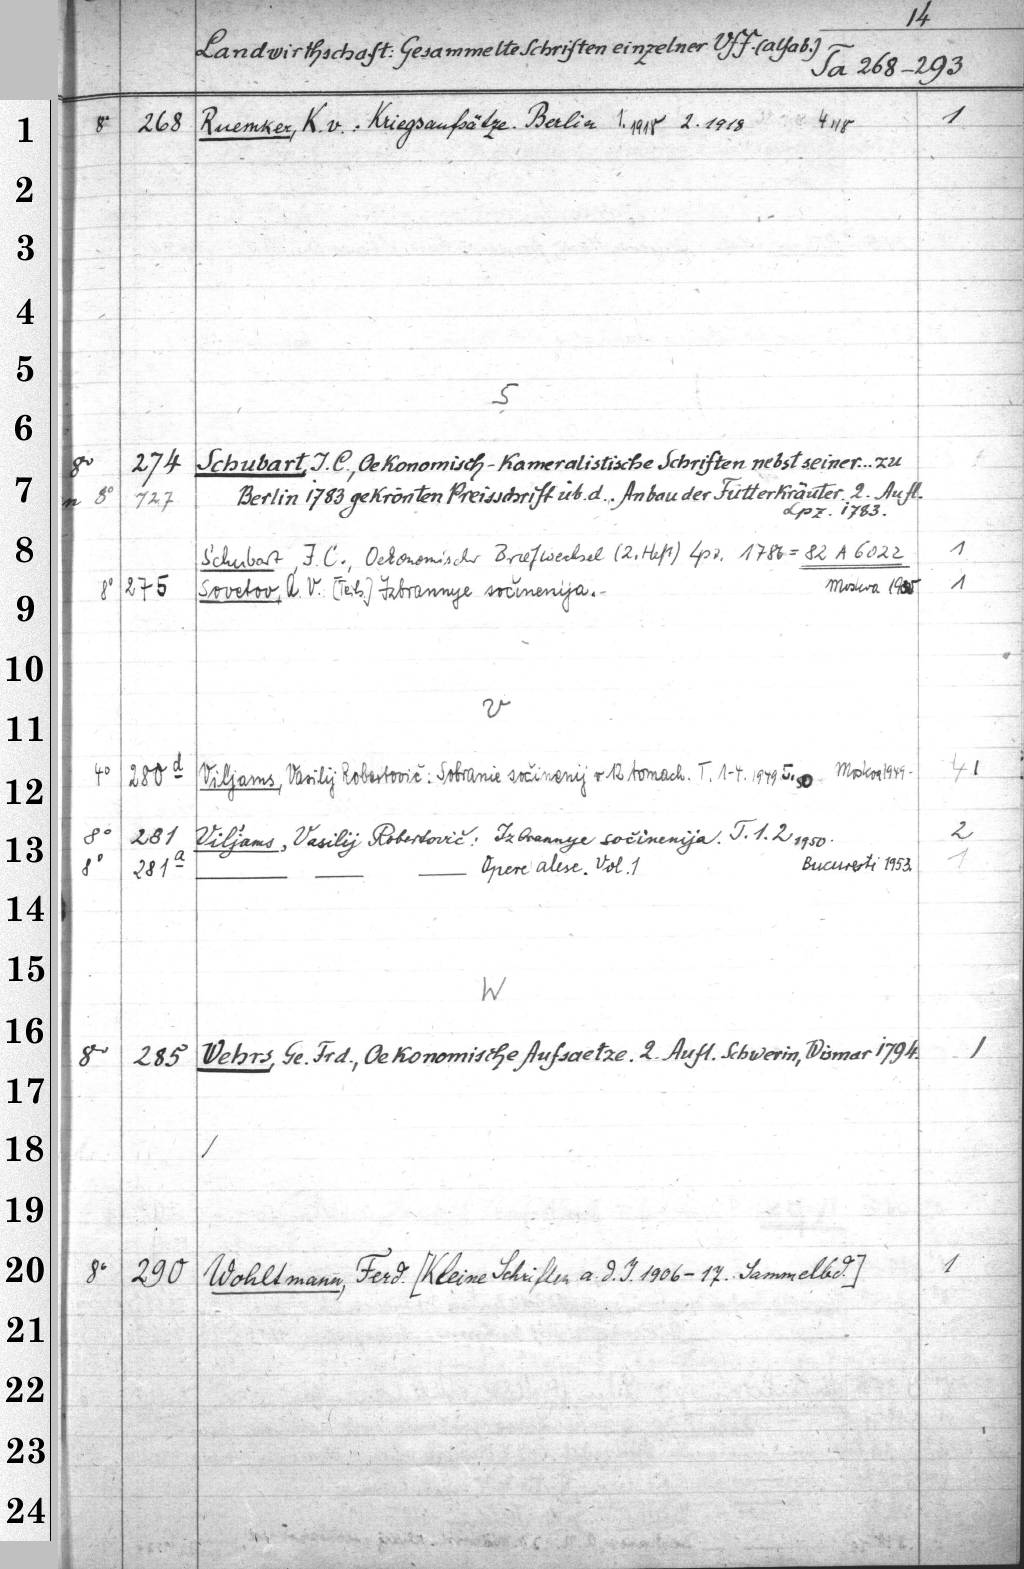 14
Landwirthschaft: Gesammelte Schriften einzelner Vff. (alfab.)
Ta 268-293
1 8° 268 Ruemker, K. v.: Kriegsaufsätze. Berlin 1. 1915 2. 1918 1
2
3
4
5
S
6
8° 274 Schubart, J. C., Oekonomisch-Kameralistische Schriften nebst seiner... zu
7 n 8° 727 Berlin 1783 gekrönten Preisschrift üb. d.. Anbau der Futterkräuter. 2. Aufl.
Lpz. 1783.
8 Schubart, J. C., Oekonomischer Briefwechsel (2. Heft) Lpz. 1786 = 82 A 6022 1
9 8° 275 Sovetov, A. V. [Teils.] Izbrannye sočinenija. - Moskva 1950 1
10
11 V
12 4° 280 d Viljams, Vasilij Robertovič: Sobranie sočinenij v 12 tomach. T. 1-4. 1949 5. 50 Moskva 1949- 4 1
13 8° 281 Viljams, Vasilij Robertovič: Izbrannye sočinenija. T. 1. 2 1950. 2
8° 281 a Opere alese. Vol. 1 Bucureşti 1953. 1
14
15
W
16
8° 285 Wehrs, Ge. Frd., Oekonomische Aufsaetze. 2. Aufl. Schwerin, Wismar 1794. 1
17
18 /
19
20 8° 290 Wohltmann, Ferd. [Kleine Schriften a. d. J. 1906-17. Sammelbd.] 1
21
22
23
24